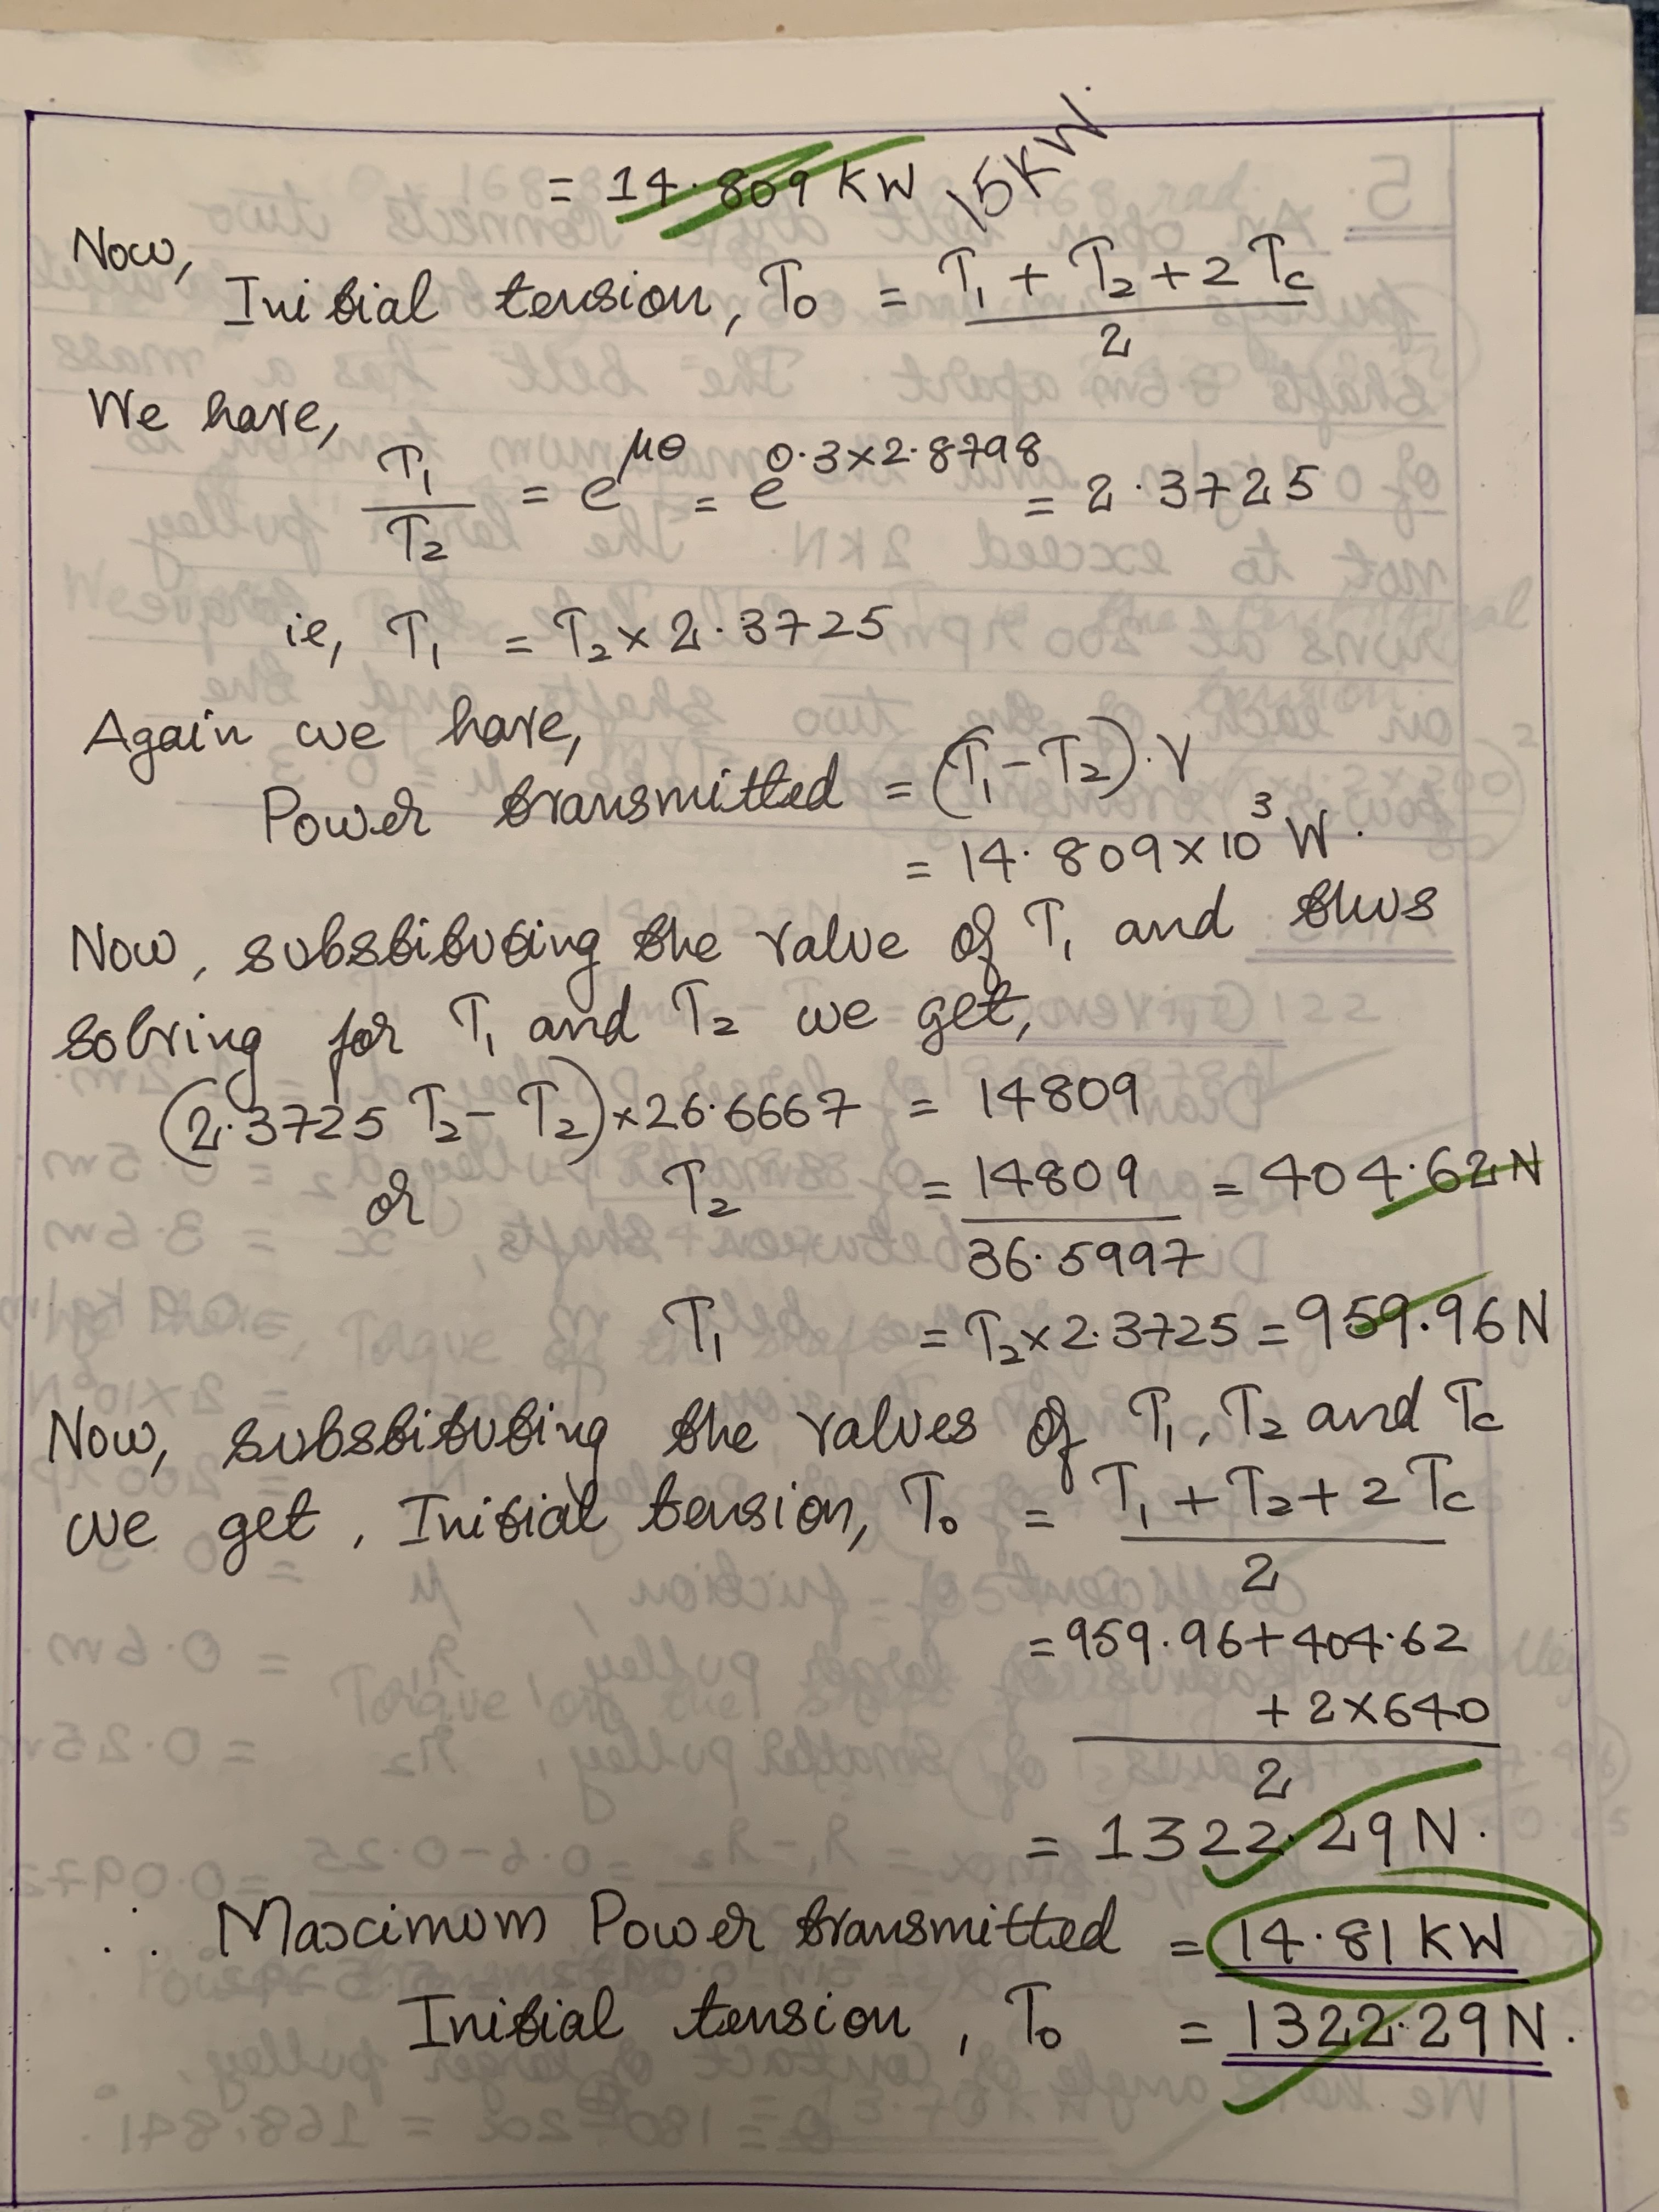 = 14.809 KW 15KW.
Now,
Initial tension, T₀ = (T₁ + T₂ + 2Tc)/2
We have,
T₁/T₂ = e^μθ = e^0.3×2.8798 = 2.3725
ie, T₁ = T₂ × 2.3725
Again we have,
Power transmitted = (T₁ - T₂).V
= 14.809 × 10³ W.
Now, substituting the value of T₁ and thus
solving for T₁ and T₂ we get,
(2.3725 T₂ - T₂) × 26.6667 = 14809
or T₂ = 14809/36.5997 = 404.62 N
T₁ = T₂ × 2.3725 = 959.96 N
Now, substituting the values of T₁, T₂ and Tc
we get, Initial tension, T₀ = (T₁ + T₂ + 2Tc)/2
= 959.96 + 404.62
+ 2 × 640
2
= 1322.29 N.
∴ Maximum Power transmitted = 14.81 KW
Initial tension, T₀ = 1322.29 N.